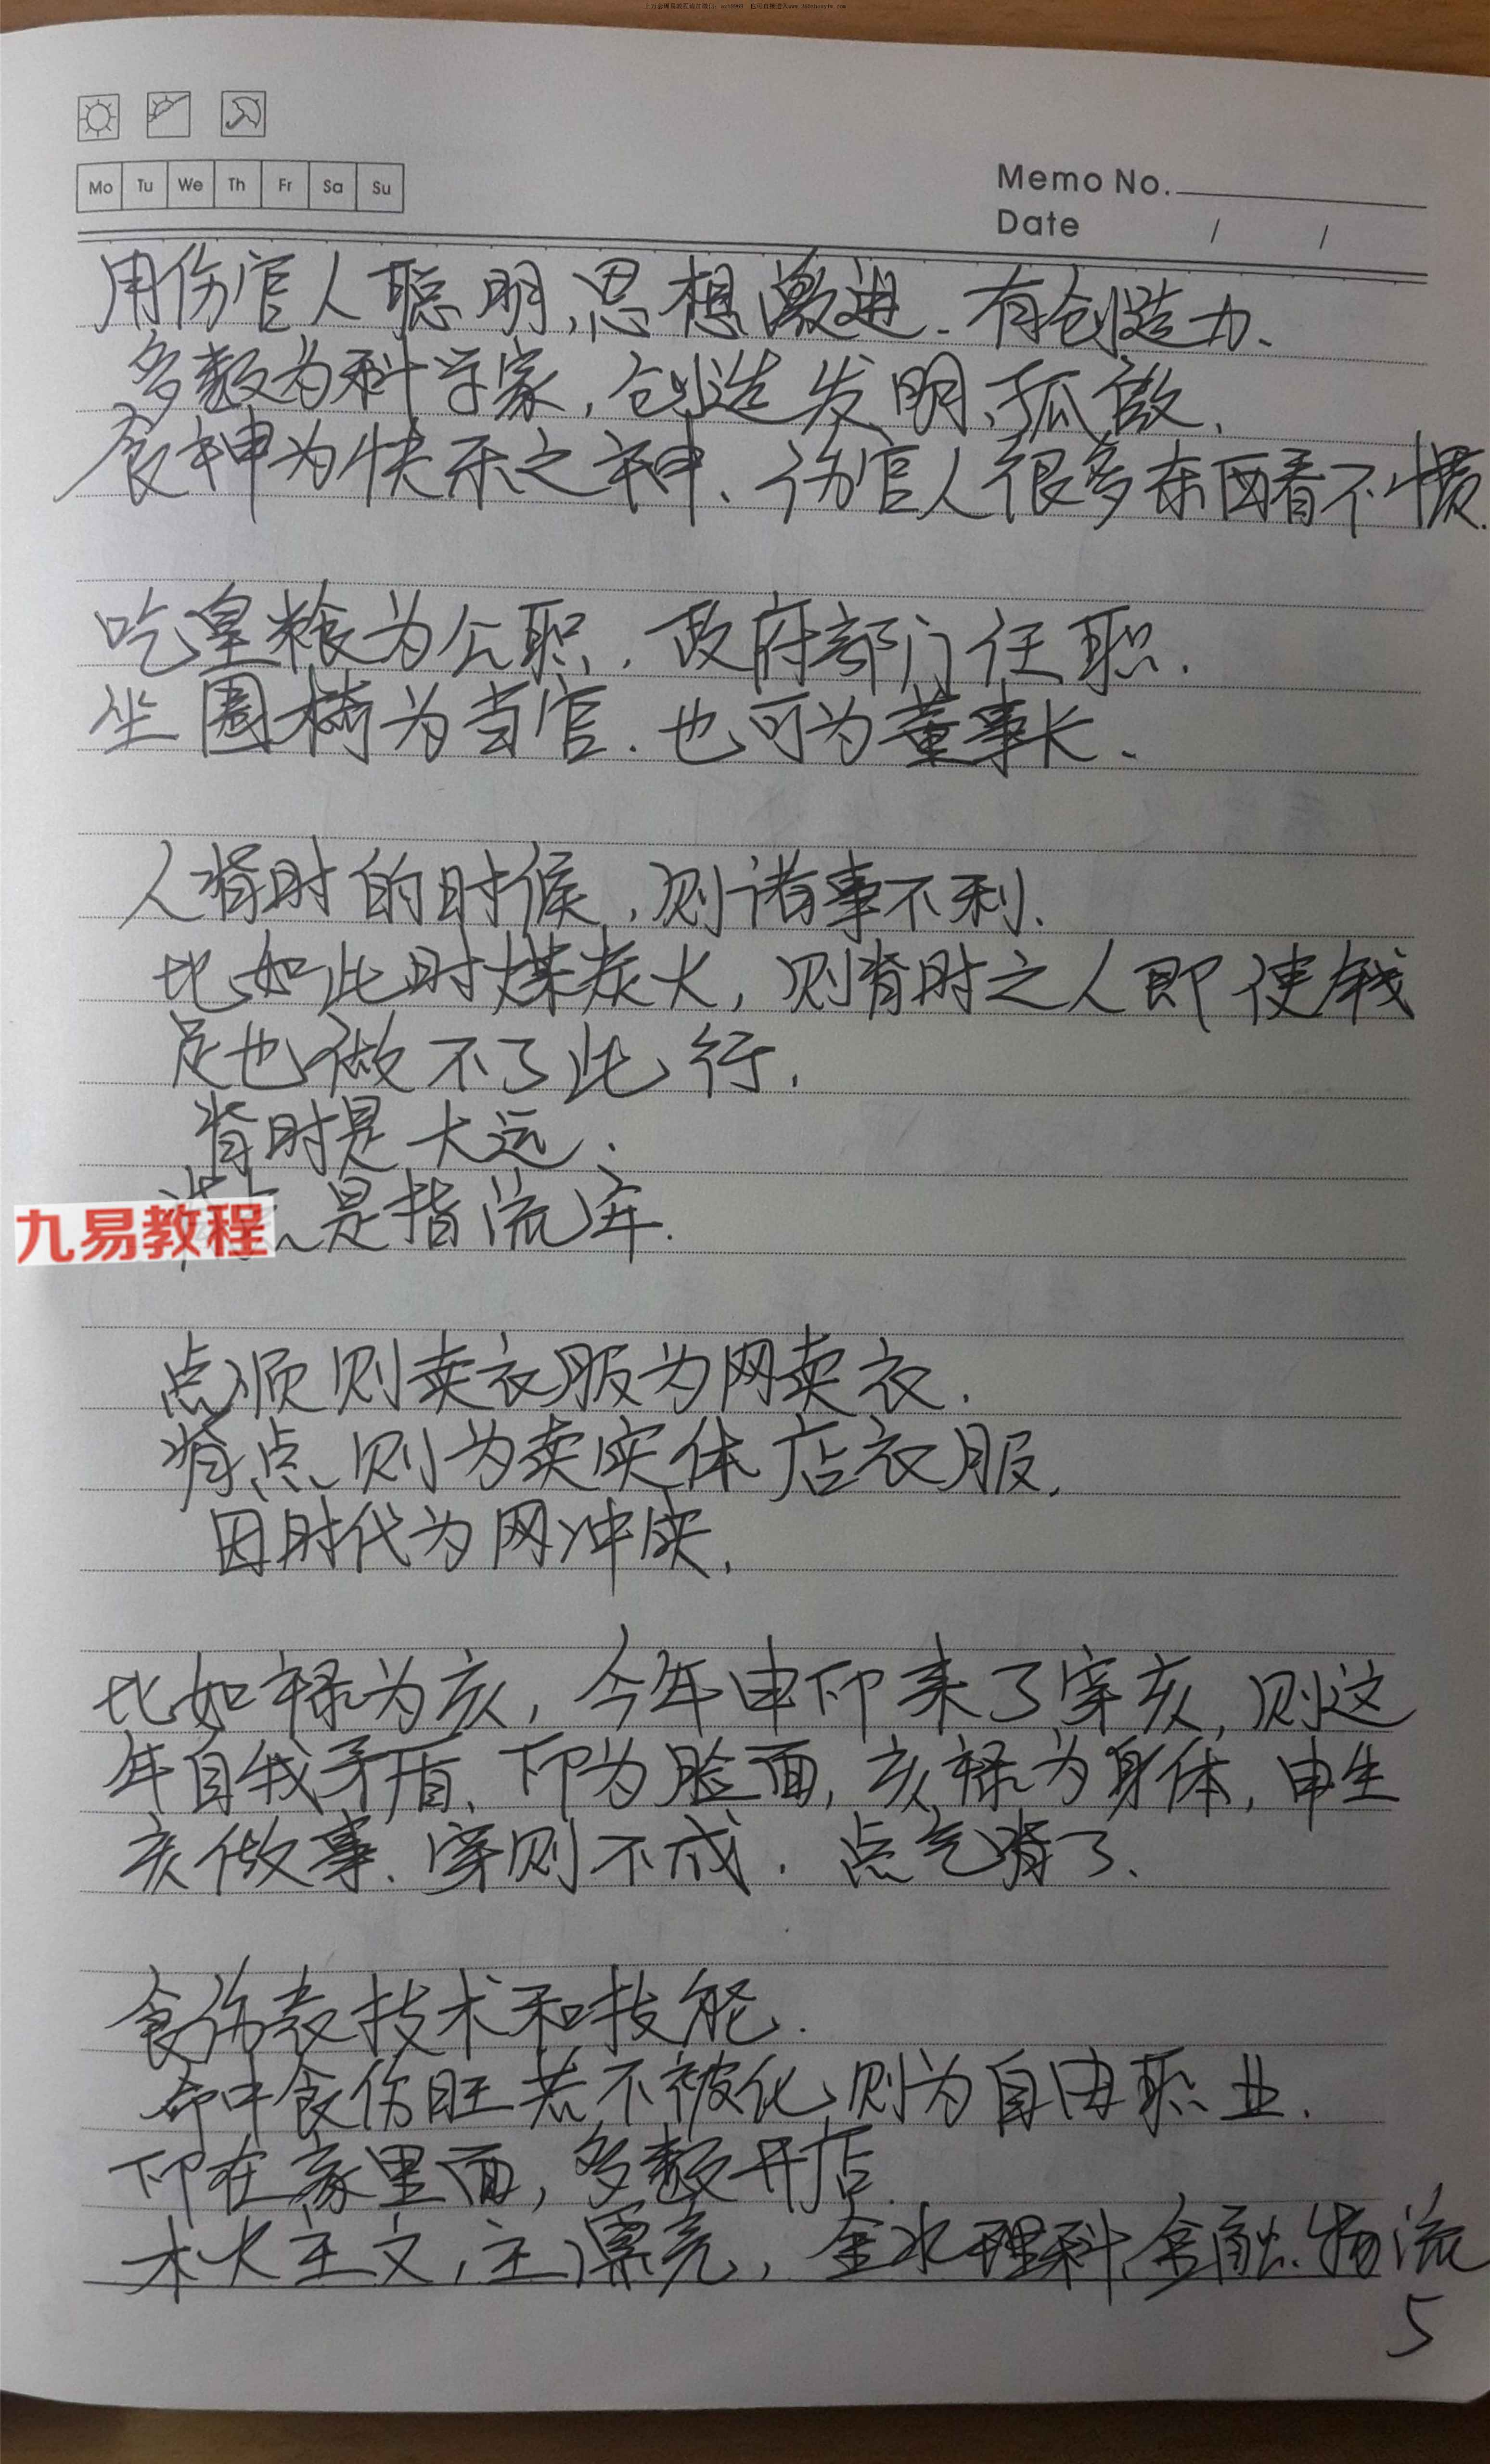 Mo Tu We Th Fr Sa Su
Memo No.
Date / /
用伤官人聪明、思想激进、有创造力、
多数为科学家,创造发明、孤傲、
食神为快乐之神、伤官人很多东西看不惯.
吃皇粮为公职.政府部门任职.
坐圈椅为当官.也可为董事长、
人背时的时候,则诸事不利.
比如此时煤炭火,则背时之人即使钱
足也做不了此行.
背时是大运.
是指流年.
九易教程
点顺则卖衣服为网卖衣.
背点则为卖实体店衣服.
因时代为网冲实.
比如禄为亥,今年申印来了穿亥,则这
年自我矛盾、印为脸面,亥禄为身体,申生
亥做事、穿则不成.点气背了、
食伤表技术和技能.
命中食伤旺若不被化,则为自由职业.
印在家里面,多数开店.
木火主文,主漂亮,金水理科、金融、物流
5